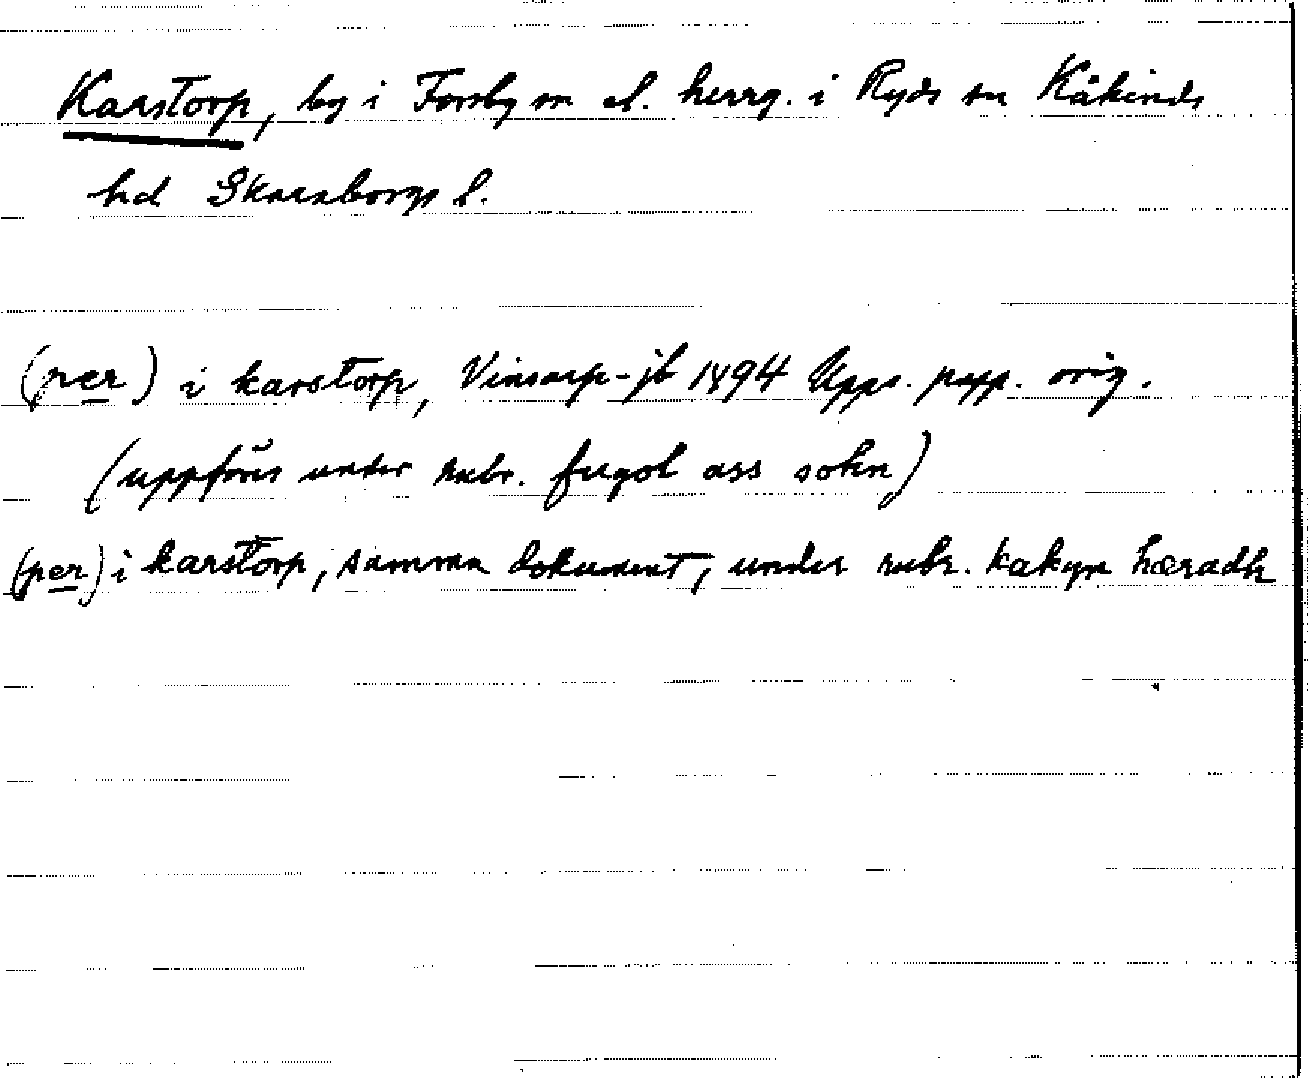 Karstorp, by i Forsby sn el. herrg. i Ryds sn Kåkinds
hd Skaraborgs l.
(per) i karstorp, Vinsarp-jb 1494 Upps. papp. orig.
(uppföres under rubr. fugol ass sokn)
(per) i karstorp, samma dokument, under rubr. kakyn hæradh